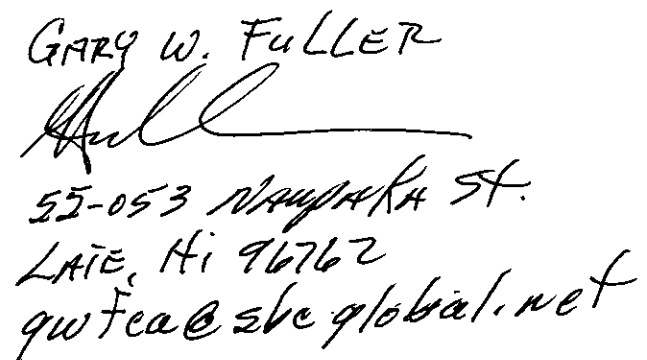 GARY W. FULLER
55-053 NAUPAKA St.
LAIE, Hi 96762
gwfca@sbcglobal.net